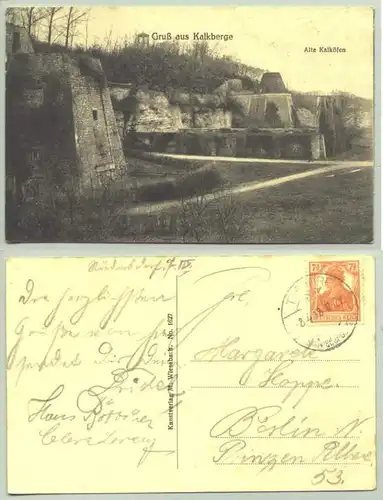 Gruß aus Kalkberge
Alte Kalköfen
Rüdersdorf, 7. VII.
Die herzlichsten
Grüße von hier
sendet Dir Dein
Hans Böttcher
Clara Lorenz
Kunstverlag M. Wiesebach. No. 1627
7½
Frl.
Margarete
Hoppe
Berlin N.
Prinzen Allee
53.